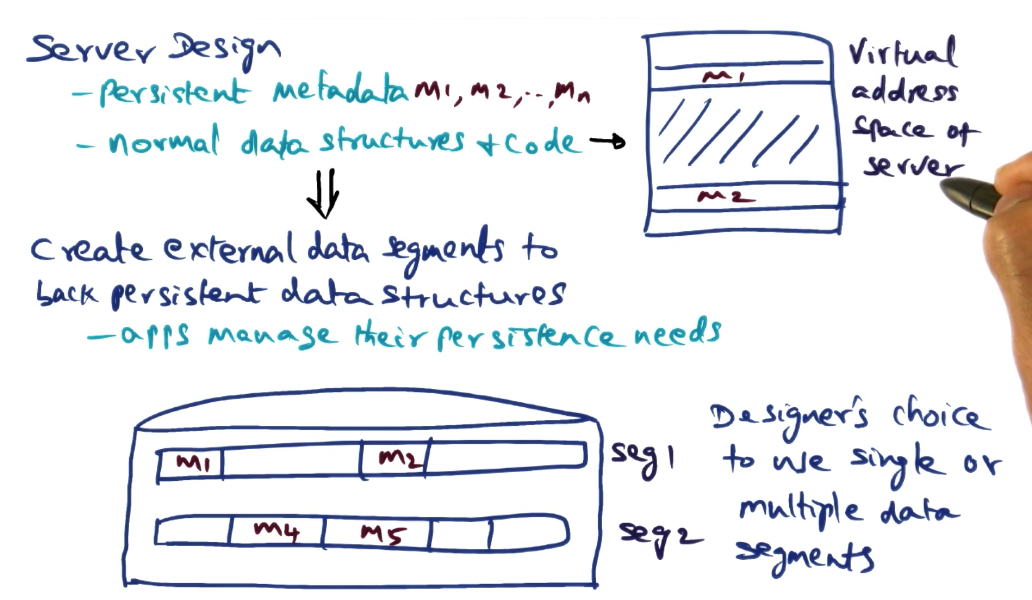 Server Design
- Persistent metadata m1, m2,..,mn
- normal data structures + code →
m1
m2
Virtual
address
space of
server
⇓
Create external data segments to
back persistent data structures
- apps manage their persistence needs
m1 m2 seg1
m4 m5 seg2
Designer's choice
to use single or
multiple data
segments